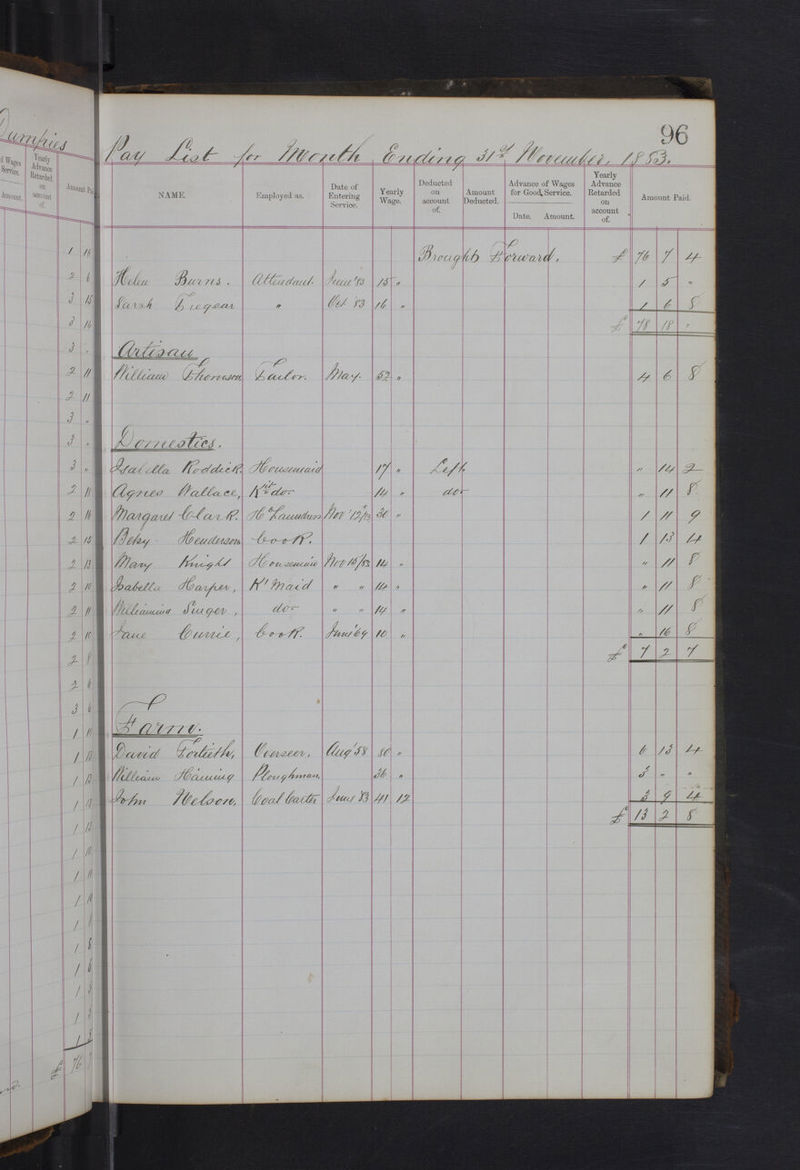 Dumfries
d Wages
Service.
Amount.
Yearly
Advance
Retarded
on
account
of.
Amount Pa
96
Pay List for Month Ending 31st November, 1883.
NAME. Employed as. Date of Entering Service. Yearly Wage. Deducted on account of. Amount Deducted. Advance of Wages for Good Service. Date. Amount. Yearly Advance Retarded on account of. Amount Paid.
Brought Forward. £ 76 7 4
Helen Burns. Attendant. June '83 15 " 1 5 "
Sarah Tregear " Oct '83 16 " 1 6 8
£ 78 18 "
Artisan
William Thomson Tailor. May. 52 " 4 6 8
Domestics.
Isabella Roddick. Housemaid 17 " Left " 14 2
Agnes Wallace, Kt do 14 " do " 11 8
Margaret Clark. Hd Laundress Nov 12/83 30 " 1 11 9
Betsy Henderson Cook. 1 13 4
Mary Knight Housemaid Nov 15/83 14 " " 11 8
Isabella Harper, Kt Maid " " 14 " " 11 8
Williamina Singer, do " " 14 " " 11 8
Jane Currie, Cook. June '69 10 " " 16 8
£ 7 2 7
Farm.
David Overseer. Aug '58 80 " 6 13 4
William Ploughman, 36 " 3 " "
John Nelson, Coal Carter June 83 41 12 3 9 4
£ 13 2 8